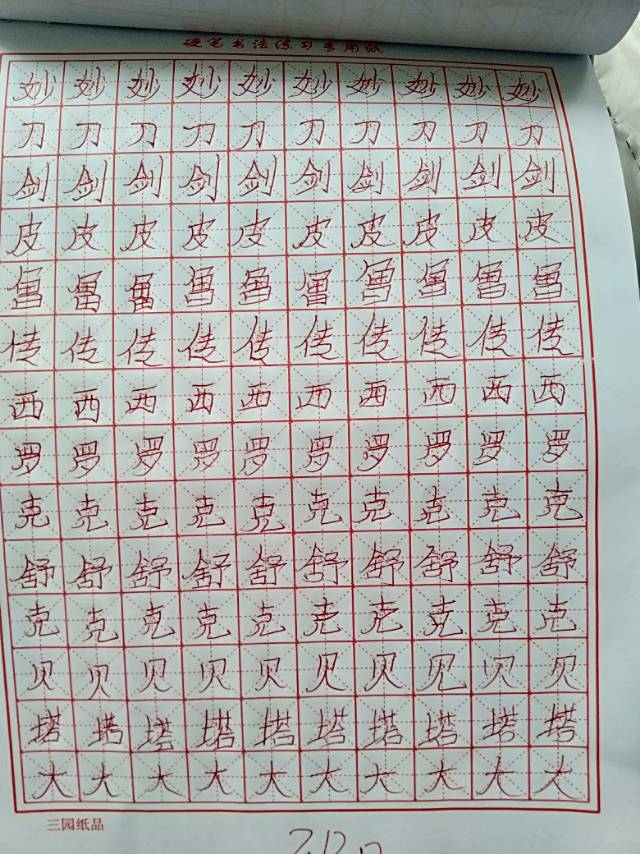 硬笔书法练习专用纸
妙妙妙妙妙妙妙妙妙妙
刀刀刀刀刀刀刀刀刀刀
剑剑剑剑剑剑剑剑剑剑
皮皮皮皮皮皮皮皮皮皮
鲁鲁鲁鲁鲁鲁鲁鲁鲁鲁
传传传传传传传传传传
西西西西西西西西西西
罗罗罗罗罗罗罗罗罗罗
克克克克克克克克克克
舒舒舒舒舒舒舒舒舒舒
克克克克克克克克克克
贝贝贝贝贝贝贝贝贝贝
塔塔塔塔塔塔塔塔塔塔
大大大大大大大大大大
三园纸品